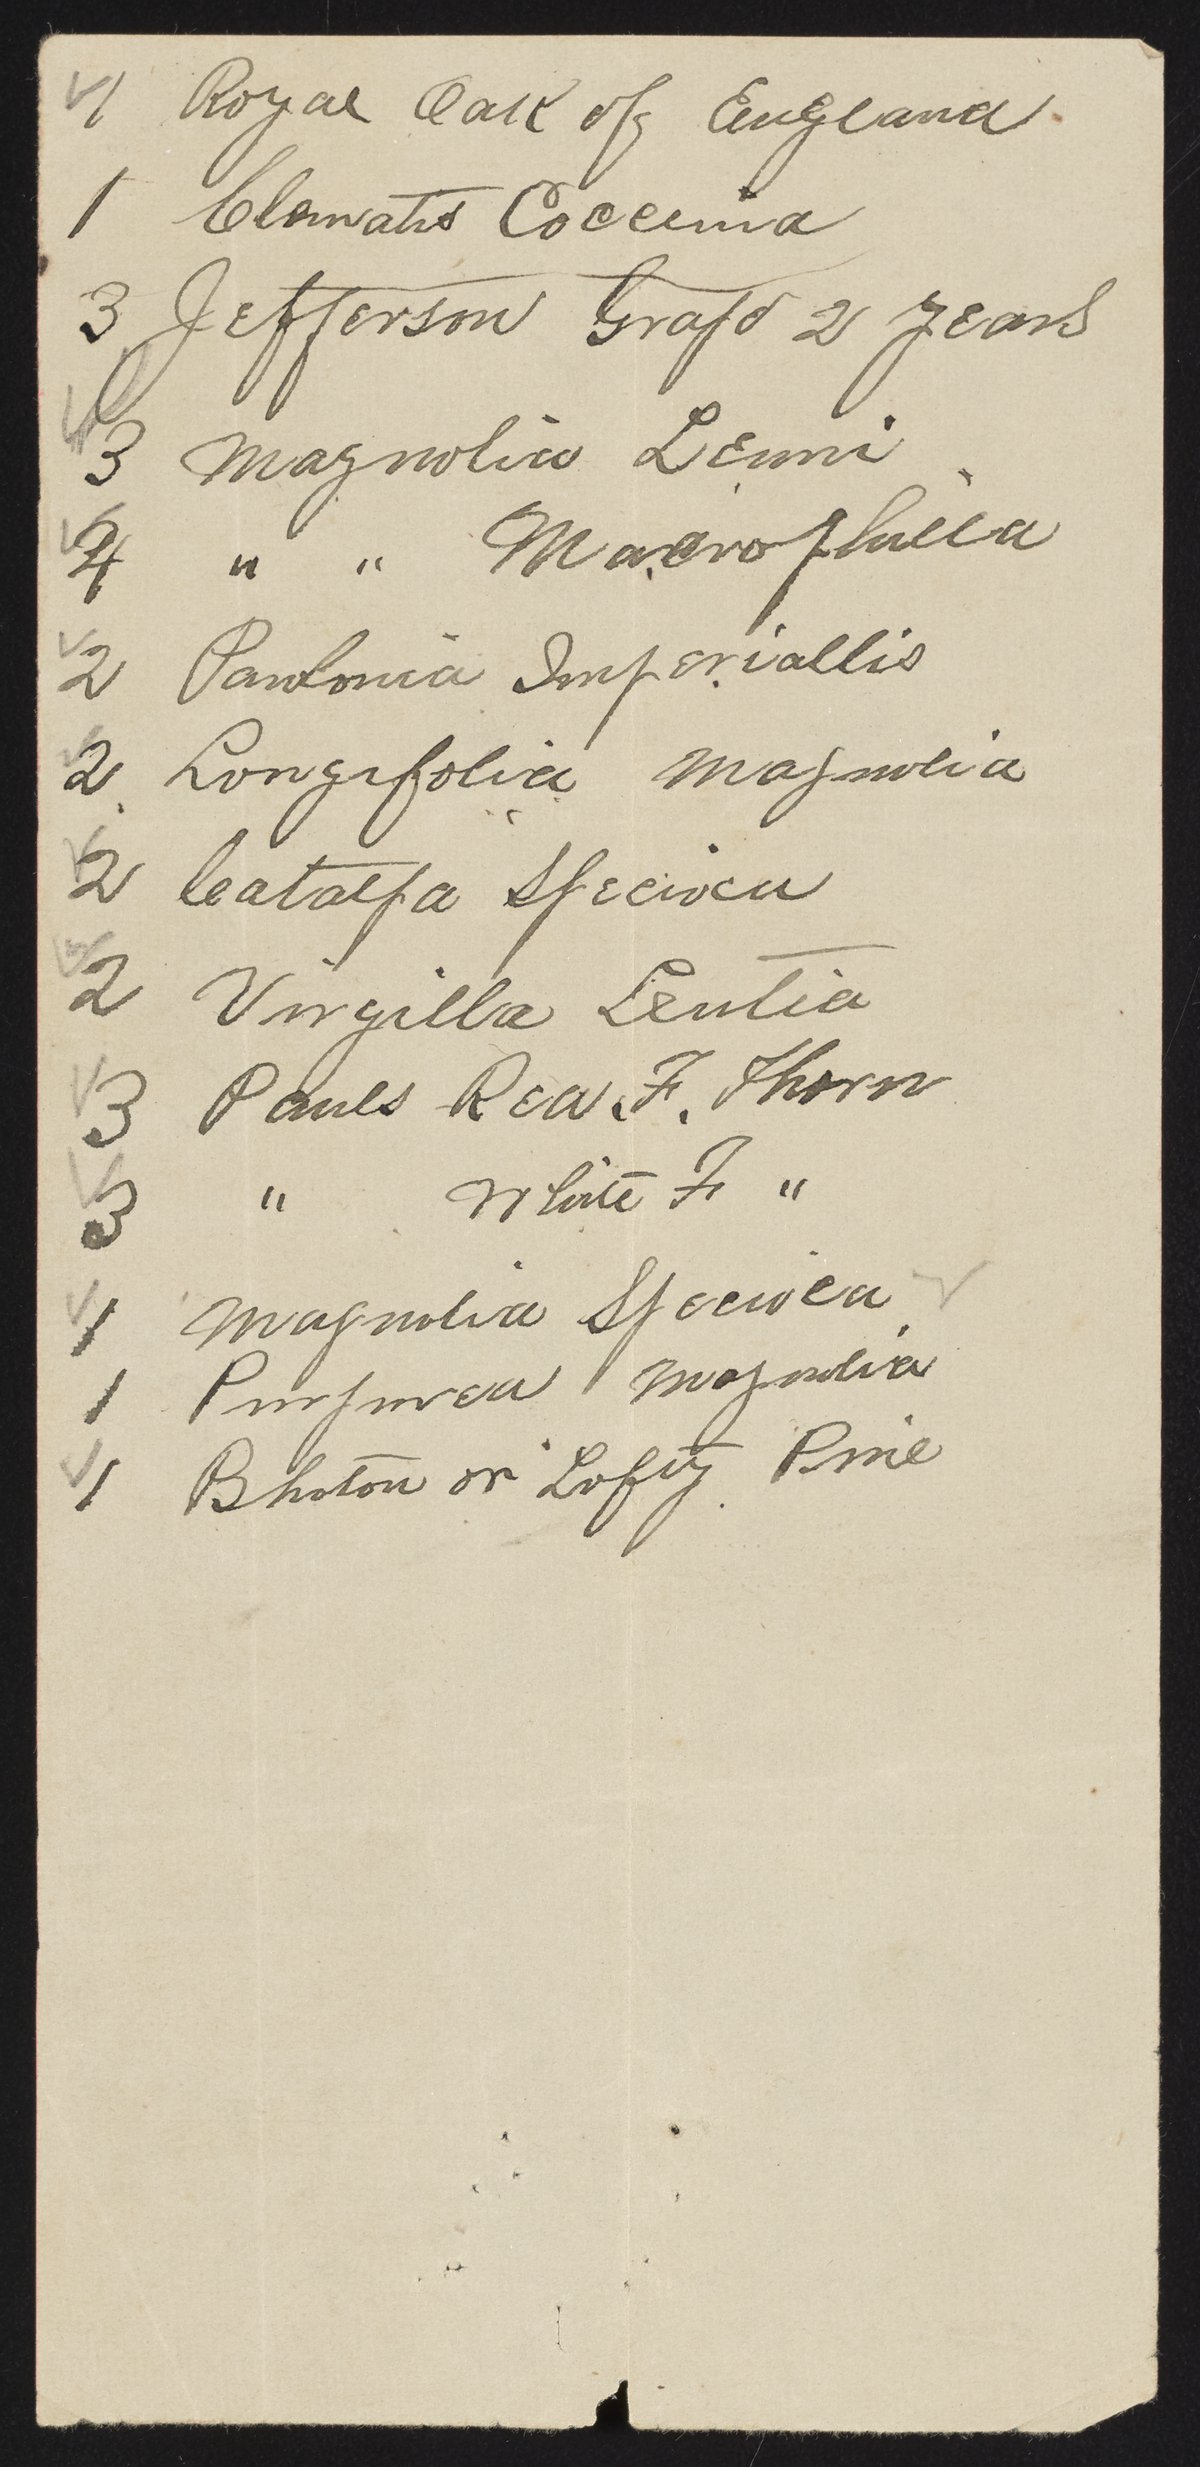 1 Royal Oak of England
1 Clematis Coccinia
3 Jefferson Grafd 2 years
3 Magnolia Lenni
4 " " Macrophilla
2 Paulonia Imperiallis
2 Longifolia Magnolia
2 Catalpa Speciosa
2 Virgilla Lentia
3 Pauls Red F. Thorn
3 " White F "
1 Magnolia Speciosa
1 Purpurea Magnolia
1 Bhotan or Lofty Pine